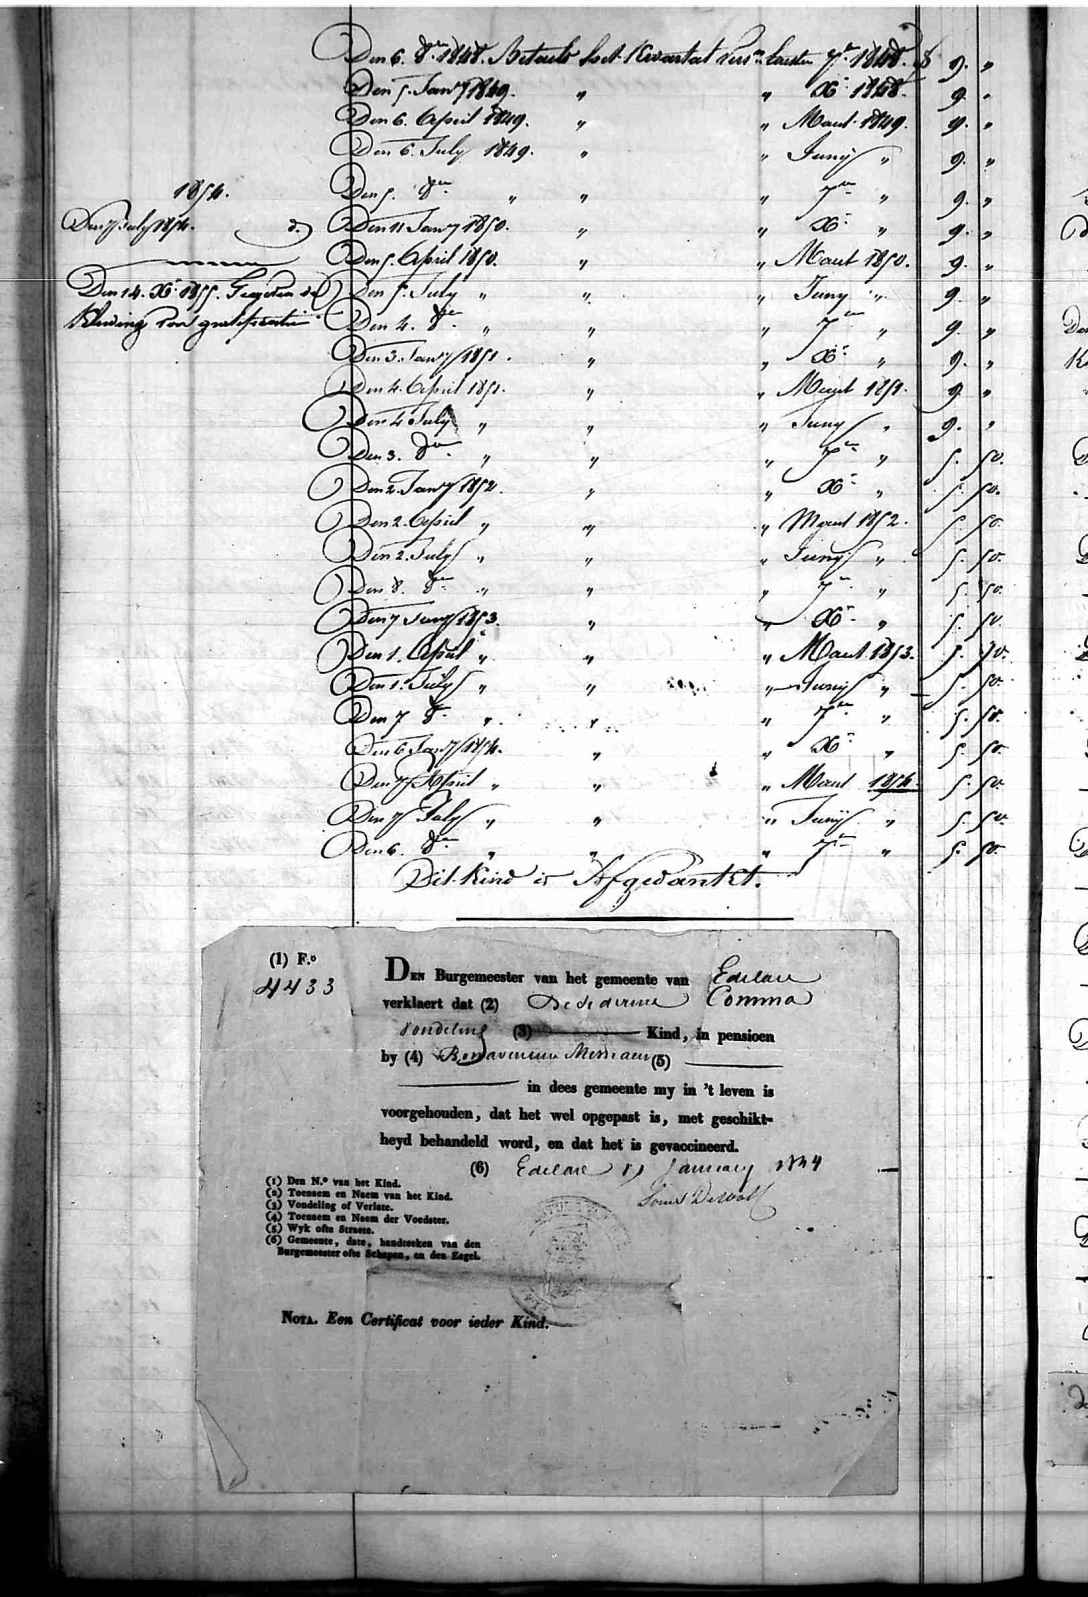 Den 6. 8re 1848. Betaelt het Kwartal vers. laesten 7re 1848. f 9. "
Den 5. Janry 1849. " " Xr 1848. 9. "
Den 6. April 1849. " " Maert 1849. 9. "
Den 6. July 1849. " " Juny " 9. "
1854.
Den 5. 8re " " " 7re " 9. "
Den 7 July 1854. d.
Den 11 Janry 1850. " " Xr " 9. "
Den 5. April 1850. " " Maert 1850. 9. "
Den 14. Xr 1855. Gegeven de
Den 5. July " " " Juny " 9. "
Kleeding voor gratificatie
Den 4. 8re " " " 7re " 9. "
Den 3. Janry 1851. " " Xr " 9. "
Den 4. April 1851. " " Maert 1851. 9. "
Den 4 July " " " Juny " 9. "
Den 3. 8re " " " 7re " 5. 50.
Den 2. Janry 1852. " " Xr " 5. 50.
Den 2. April " " " Maert 1852. 5. 50.
Den 2. July " " " Juny " 5. 50.
Den 8. 8re " " " 7re " 5. 50.
Den 7 Janry 1853. " " Xr " 5. 50
Den 1. April " " " Maert 1853. 5. 50.
Den 1. July " " " Juny " 5. 50.
Den 7 8re " " " 7re " 5. 50.
Den 6 Janry 1854. " " Xr " 5. 50.
Den 7 April " " " Maert 1854. 5. 50.
Den 7 July " " " Juny " 5. 50.
Den 6. 8re " " " 7re " 5. 50.
Dit Kind is Afgedankt.
(1) F.o
4433
DEN Burgemeester van het gemeente van Edelare
verklaert dat (2) Desederine Comma
vondeling (3) Kind, in pensioen
by (4) Bonaventure (5)
in dees gemeente my in 't leven is
voorgehouden, dat het wel opgepast is, met geschikt-
heyd behandeld word, en dat het is gevaccineerd.
(6) Edelare January 1844
Louis DeWolf
(1) Den N.o van het Kind.
(2) Toenaem en Naem van het Kind.
(3) Vondeling of Verlate.
(4) Toenaem en Naem der Voedster.
(5) Wyk ofte Straete.
(6) Gemeente, date, handteeken van den
Burgemeester ofte Schepen, en den Zegel.
NOTA. Een Certificat voor ieder Kind.